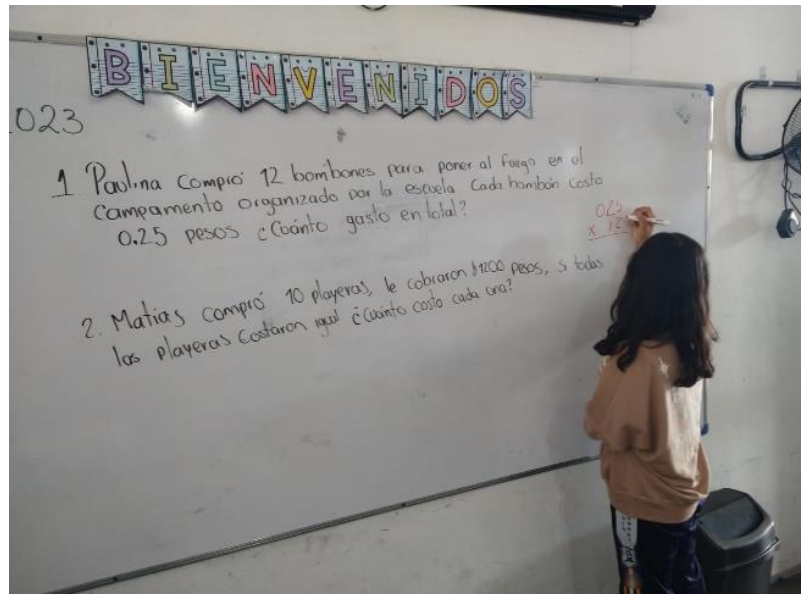 BIENVENIDOS
023
1 Paulina compro' 12 bombones para poner al fuego en el
campamento organizado por la escuela Cada bombón costo
0.25 pesos ¿Cuánto gasto en total?
025
x 12
2. Matias compro' 10 playeras, le cobraron $1200 pesos, si todas
las playeras costaron igual ¿Cuánto costo cada una?